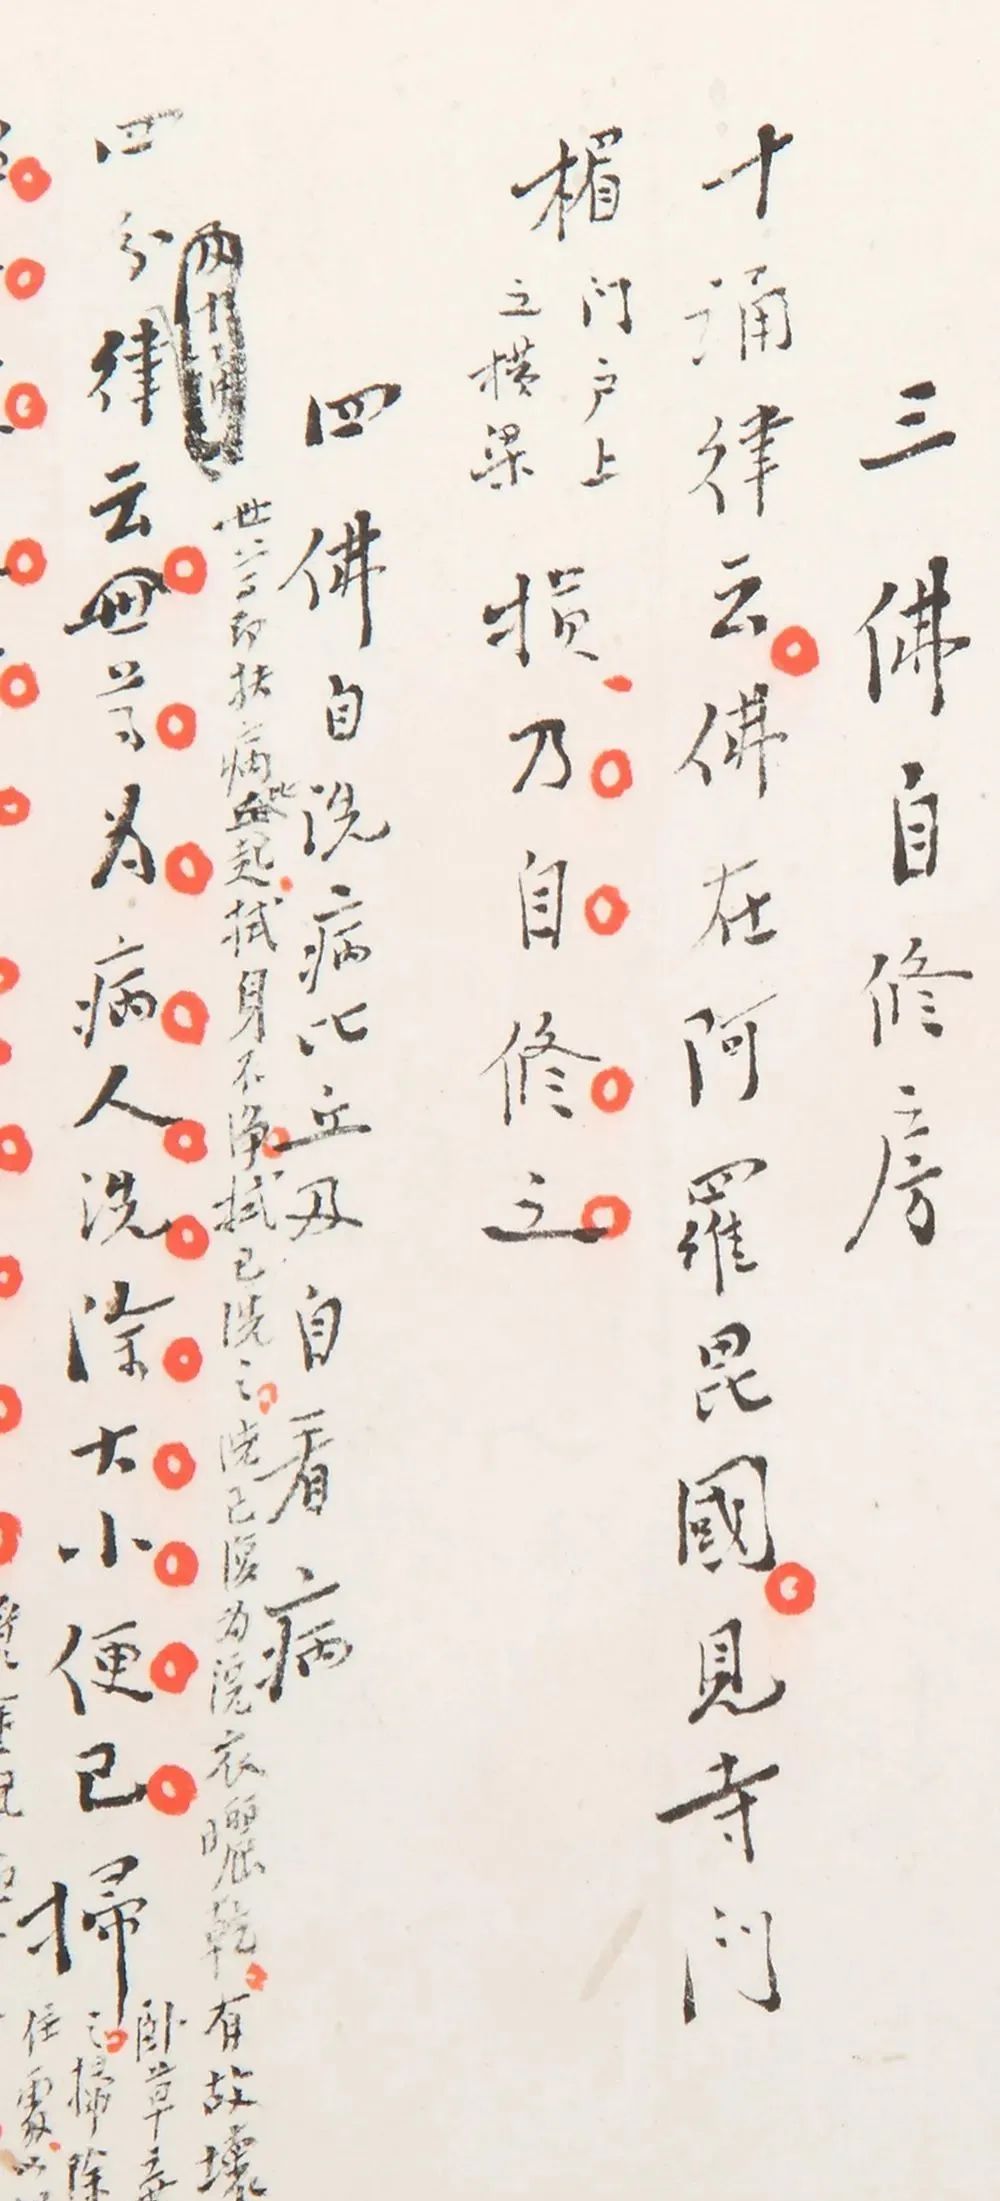 三佛自修房
十诵律云佛在阿羅毘國見寺门
楣门户上
之橫梁
损乃自修之
四佛自洗病比丘及自看病
世尊即扶病比丘起拭身不净拭已洗之洗已復为浣衣曬乾有故壞
卧草棄
之掃除
住處
四分律云世尊为病人洗除大小便已掃